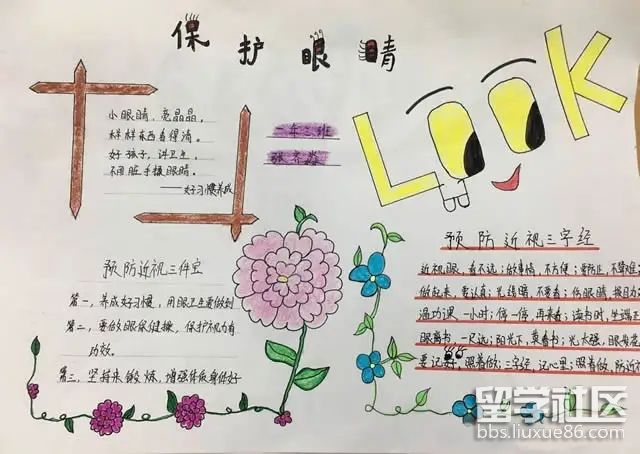 保护眼睛
LOOK
小眼睛，亮晶晶，
样样东西看得清。
好孩子，讲卫生，
不用脏手揉眼睛。
——好习惯养成
一年二班
预防近视三件宝
第一，养成好习惯，用眼卫生要做到
第二，要做眼保健操，保护视力有
功效。
第三，坚持来锻炼，增强体质身体好
预防近视三字经
近视眼，看不远；做事情，不方便；要防止，不算难；
做起来，要认真；光线暗，不要看；伤眼睛，
一小时；停一停，再来看；读书时，坐端正
眼离书，一尺远；阳光下，莫看书；光太强，眼发花
要记好，照着做；三字经，记心里；照着做，防近视
留学社区
bbs.liuxue86.com